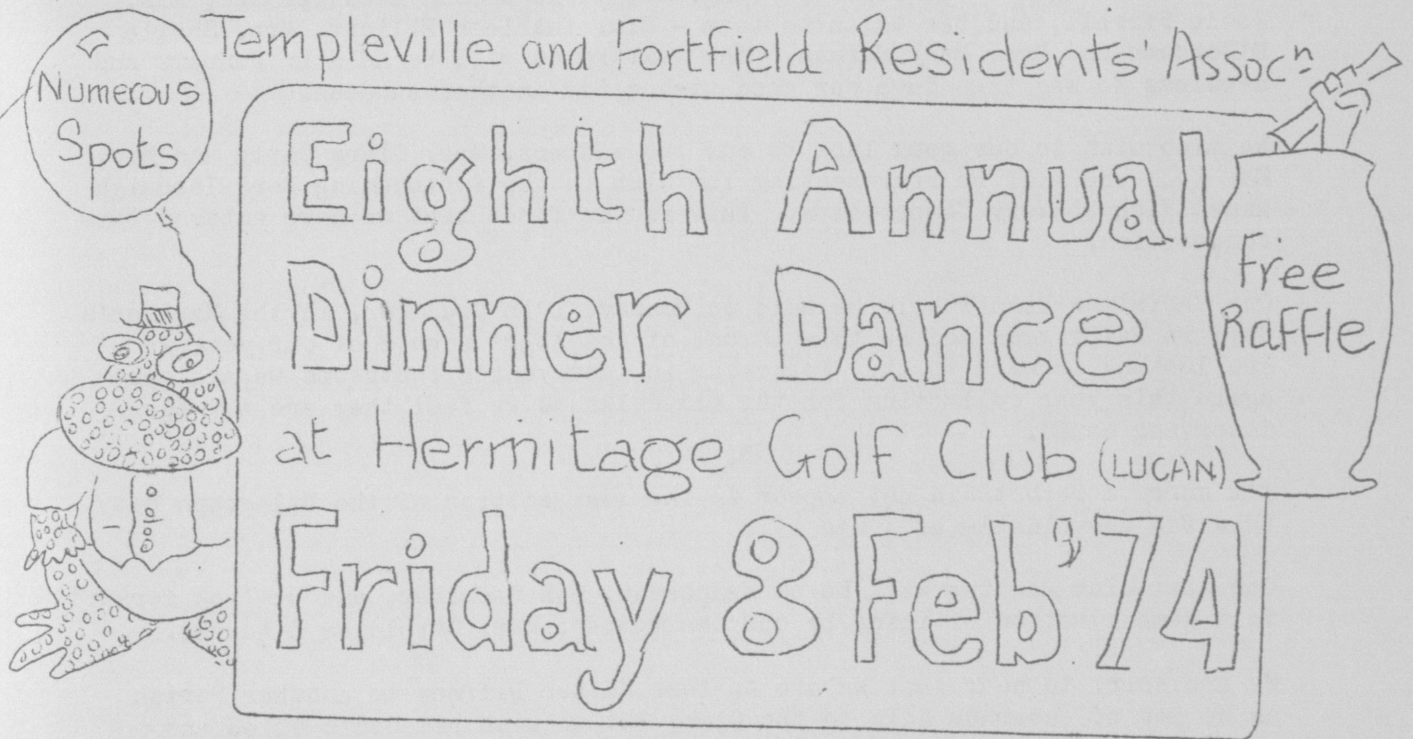 Templeville and Fortfield Residents' Assocⁿ
Numerous
Spots
Eighth Annual
Dinner Dance
at Hermitage Golf Club (LUCAN)
Friday 8 Feb '74
Free
Raffle